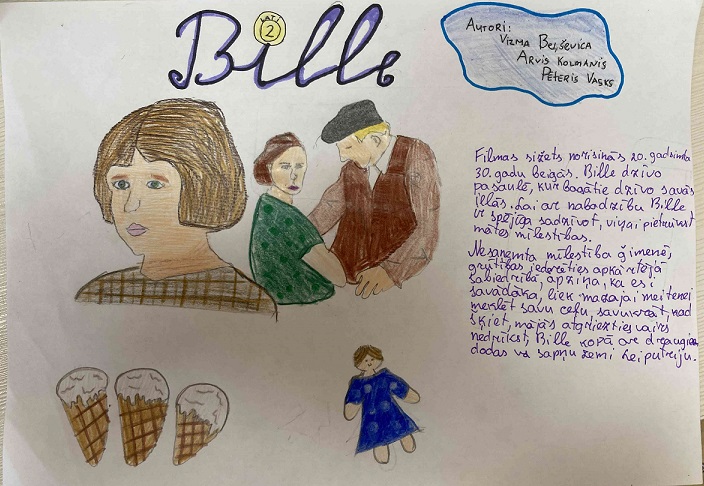 Bille
LATI
2
AUTORI:
VIZMA BELŠEVICA
ARVIS KOLMANIS
PĒTERIS VASKS
Filmas sižets norisinās 20. gadsimta
30. gadu beigās. Bille dzīvo
pasaulē, kur bagātie dzīvo savās
villās. Lai ar nabadzību Bille
ir spējīga sadzīvot, viņai pietrūkst
mātes mīlestības.
Nesaņemta mīlestība ģimenē,
grūtības iederēties apkārtējā
sabiedrībā, apziņa, ka esi
savādāka, liek mazajai meitenei
meklēt savu ceļu, savukārt, kad
šķiet, mājās atgriezties vairs
nedrīkst, Bille kopā ar draugiem
dodas uz sapņu zemi Leiputriju.